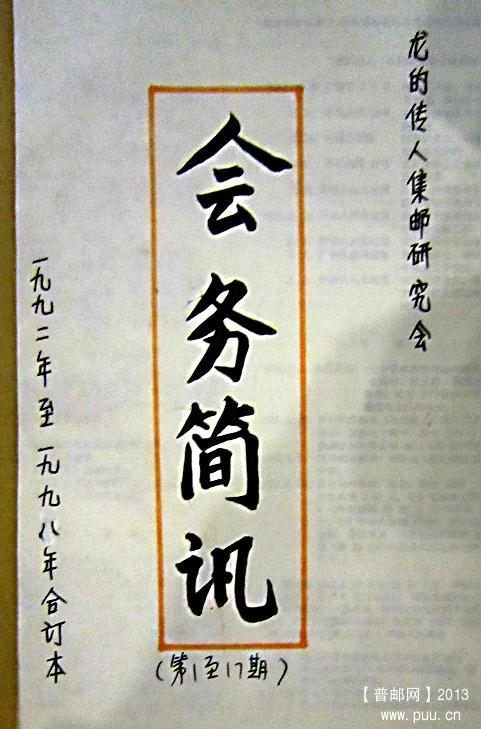 龙的传人集邮研究会
会务简讯
(第1至17期)
一九九二年至一九九八年合订本
【普邮网】2013
www.puu.cn